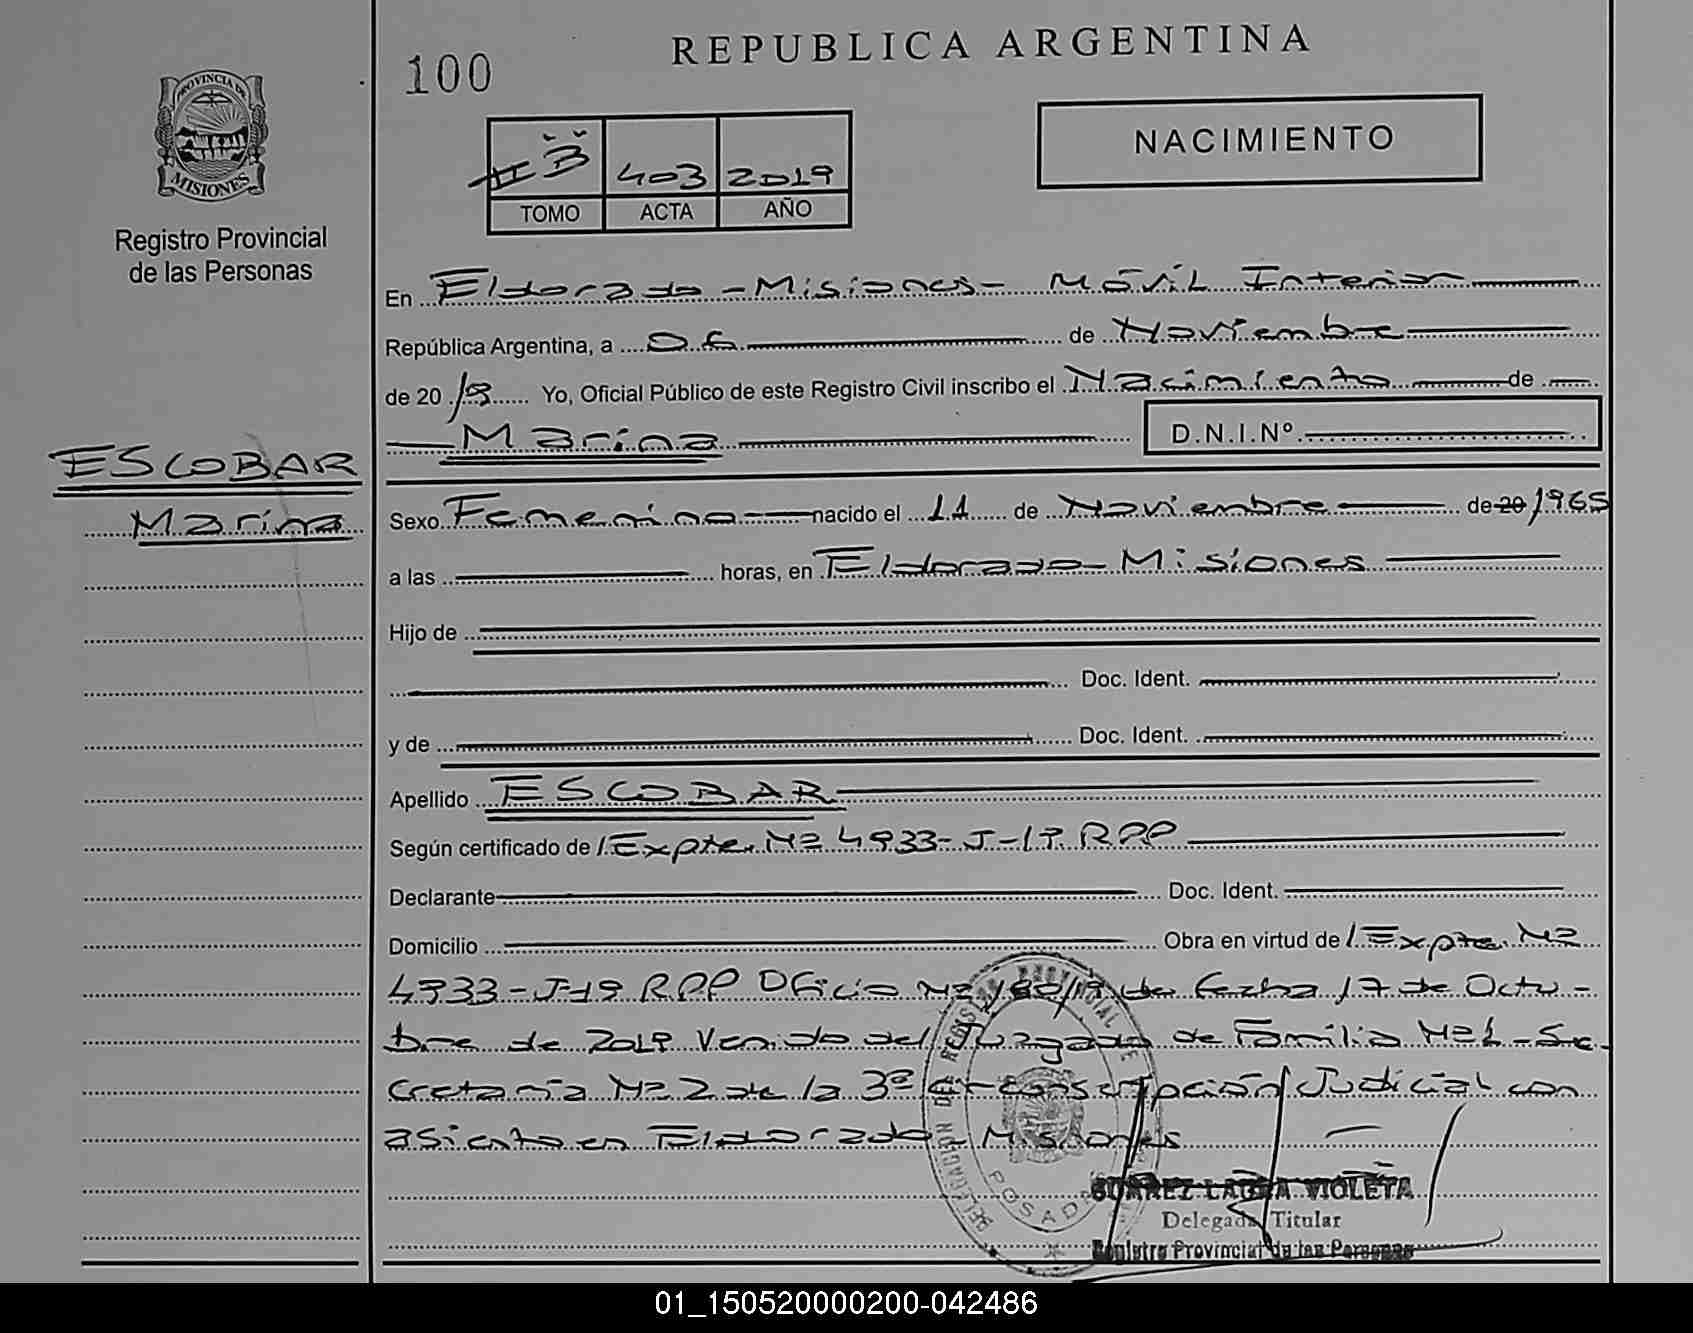 REPUBLICA ARGENTINA
100
PROVINCIA DE
MISIONES
Registro Provincial
de las Personas
NACIMIENTO
II B 403 2019
TOMO ACTA AÑO
En Eldorado - Misiones - Móvil Interior
República Argentina, a 06 de Noviembre
de 20 19 Yo, Oficial Público de este Registro Civil inscribo el Nacimiento de
Marina D.N.I.Nº
ESCOBAR
Marina
Sexo Femenino nacido el 11 de Noviembre de 20 1965
a las horas, en Eldorado - Misiones
Hijo de
Doc. Ident.
y de Doc. Ident.
Apellido ESCOBAR
Según certificado de Expte. Nº 4933-J-19 RPP
Declarante Doc. Ident.
Domicilio Obra en virtud de Expte. Nº
4933-J-19 RPP Oficio Nº de fecha 17 de Octu-
bre de 2019 Venido del Juzgado de Familia Nº1 - Se-
cretaría Nº 2 de la 3º circunscripción Judicial con
asiento en Eldorado - Misiones
DELEGACION DEL REGISTRO PROVINCIAL DE
POSADAS
SUAREZ LAURA VIOLETA
Delegada Titular
Registro Provincial de las Personas
01_150520000200-042486